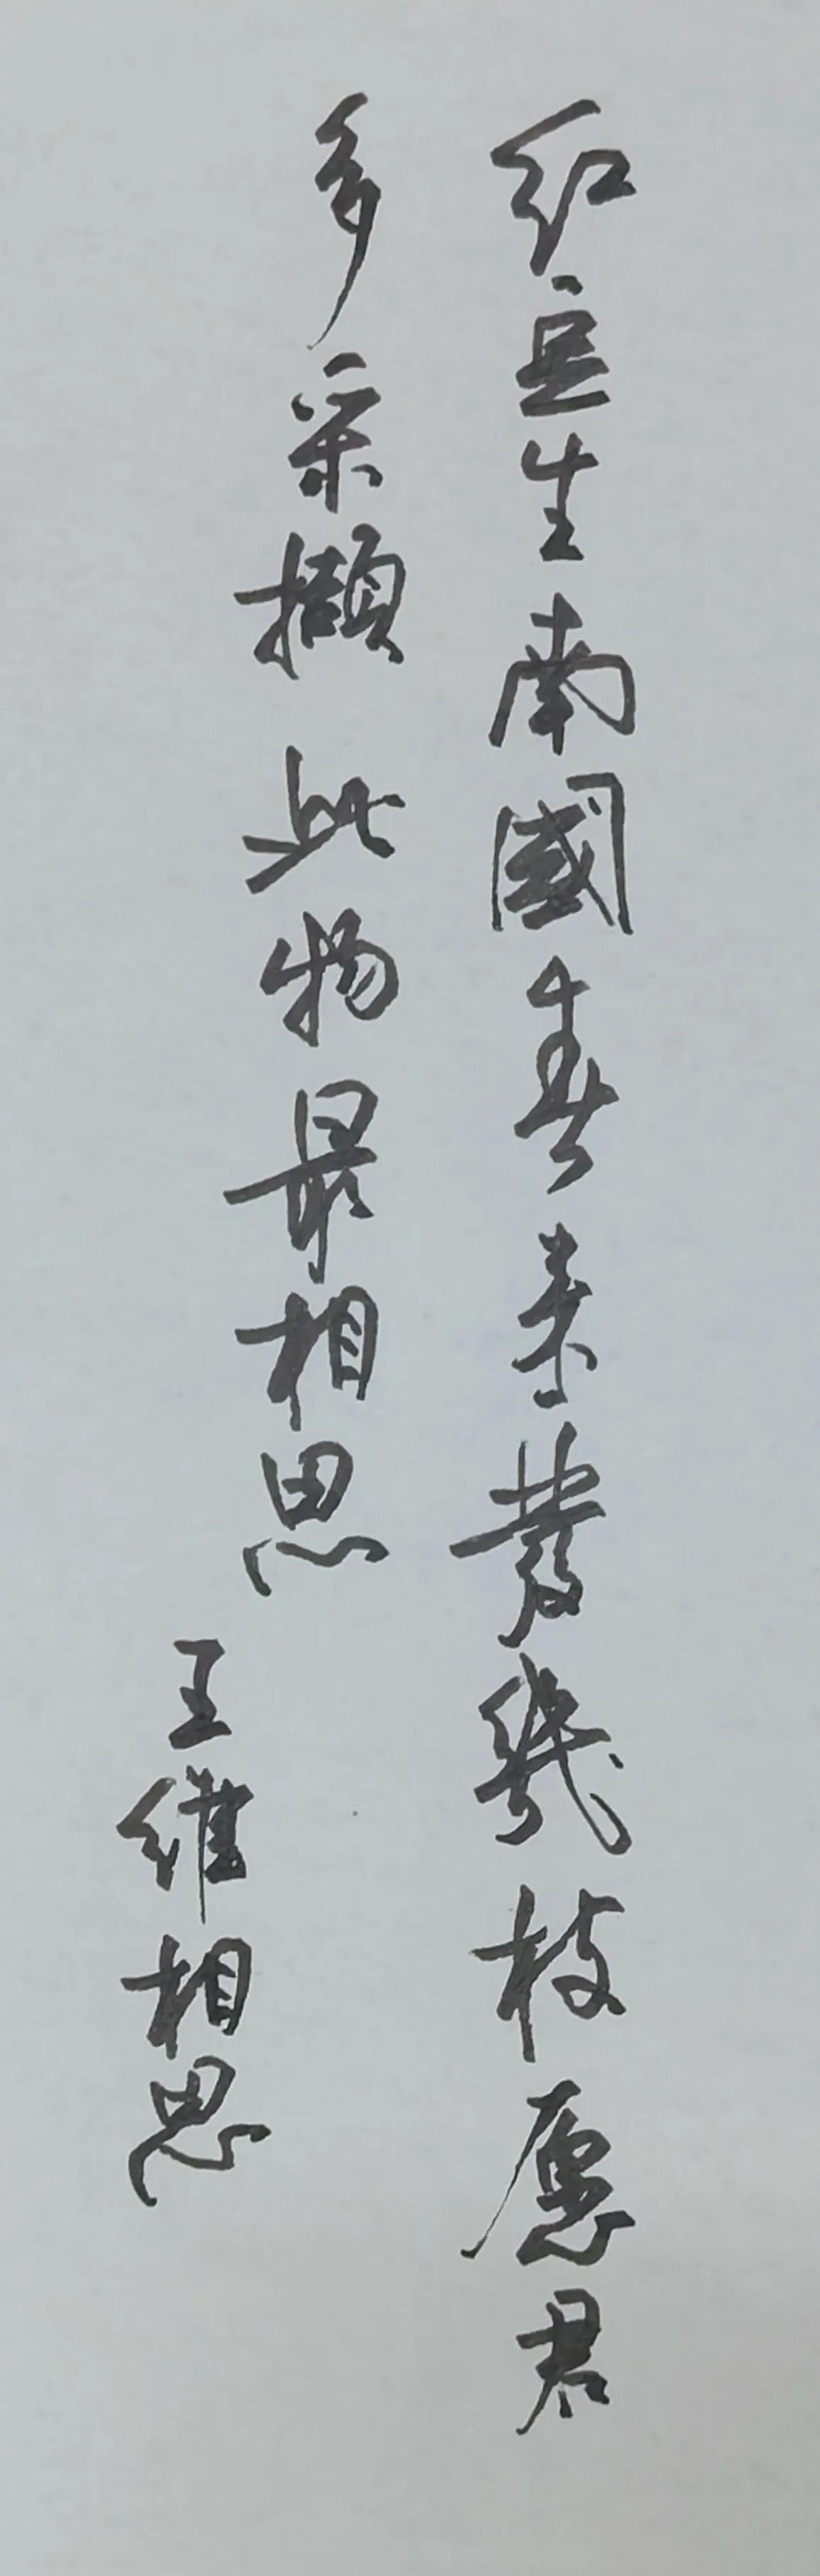 红豆生南國春来發幾枝愿君
多采撷此物最相思
王维相思